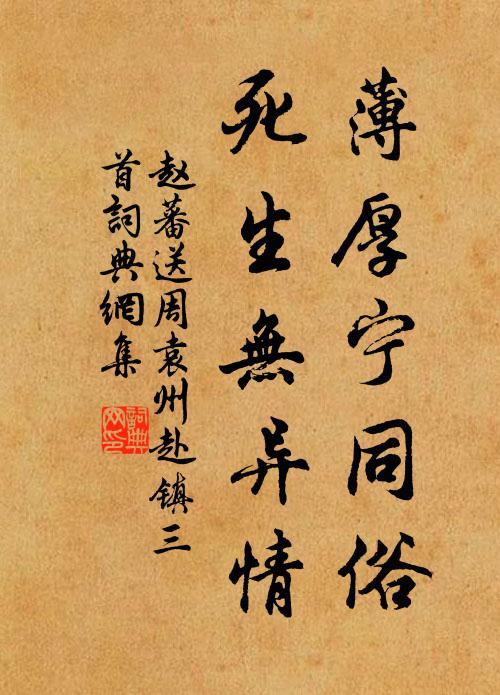 薄厚宁同俗
死生無异情
赵蕃送周袁州赴镇三
首詞典網集
詞典
网印